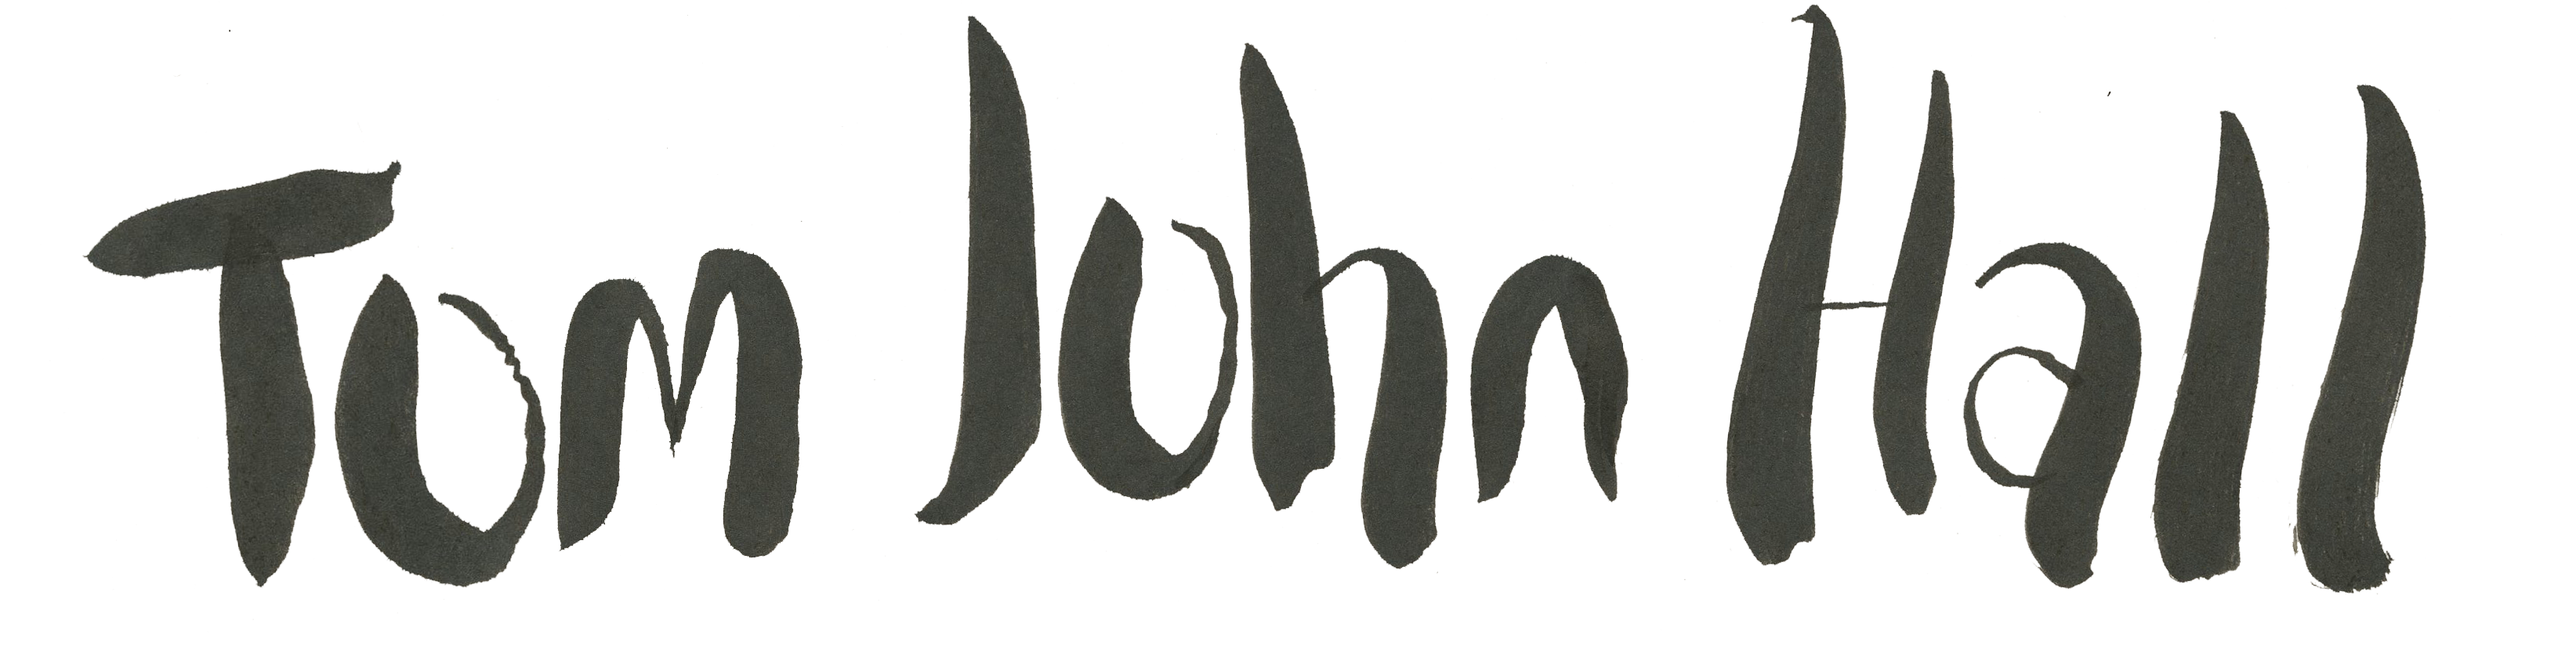 Tom John Hall